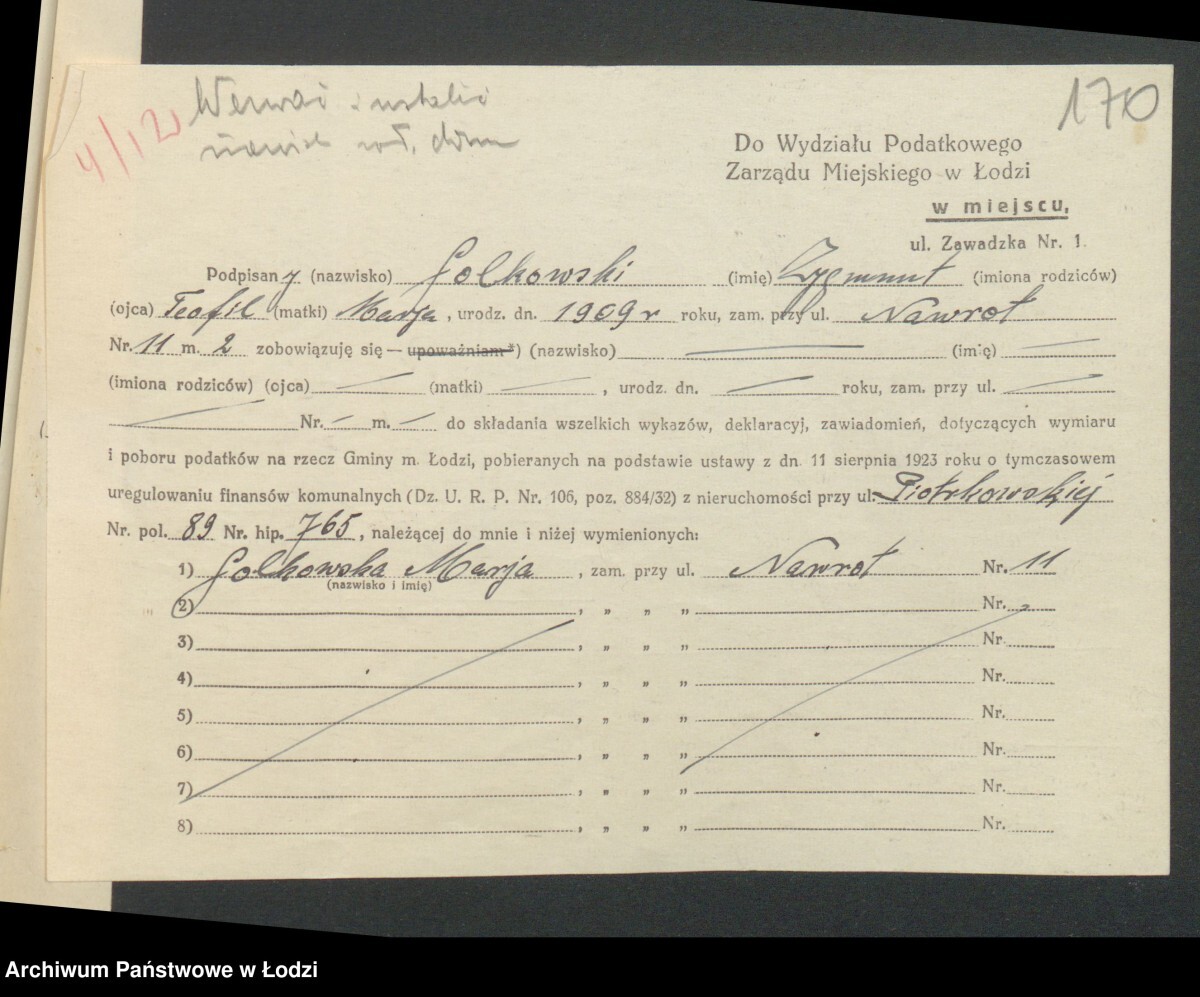 170
4/12
Wezwać i ustalić
wł. domu
Do Wydziału Podatkowego
Zarządu Miejskiego w Łodzi
w miejscu,
ul. Zawadzka Nr. 1.
Podpisany (nazwisko) Golkowski (imię) Zygmunt (imiona rodziców)
(ojca) Teofil (matki) Marja, urodz. dn. 1909 r roku, zam. przy ul. Nawrot
Nr. 11 m. 2 zobowiązuję się — upoważniam*) (nazwisko) (imię)
(imiona rodziców) (ojca) (matki) , urodz. dn. roku, zam. przy ul.
Nr. m. do składania wszelkich wykazów, deklaracyj, zawiadomień, dotyczących wymiaru
i poboru podatków na rzecz Gminy m. Łodzi, pobieranych na podstawie ustawy z dn. 11 sierpnia 1923 roku o tymczasowem
uregulowaniu finansów komunalnych (Dz. U. R. P. Nr. 106, poz. 884/32) z nieruchomości przy ul. Piotrkowskiej
Nr. pol. 89 Nr. hip. 765, należącej do mnie i niżej wymienionych:
1) Golkowska Marja , zam. przy ul. Nawrot Nr. 11
(nazwisko i imię)
2) , „ „ „ Nr.
3) , „ „ „ Nr.
4) , „ „ „ Nr.
5) , „ „ „ Nr.
6) , „ „ „ Nr.
7) , „ „ „ Nr.
8) , „ „ „ Nr.
Archiwum Państwowe w Łodzi